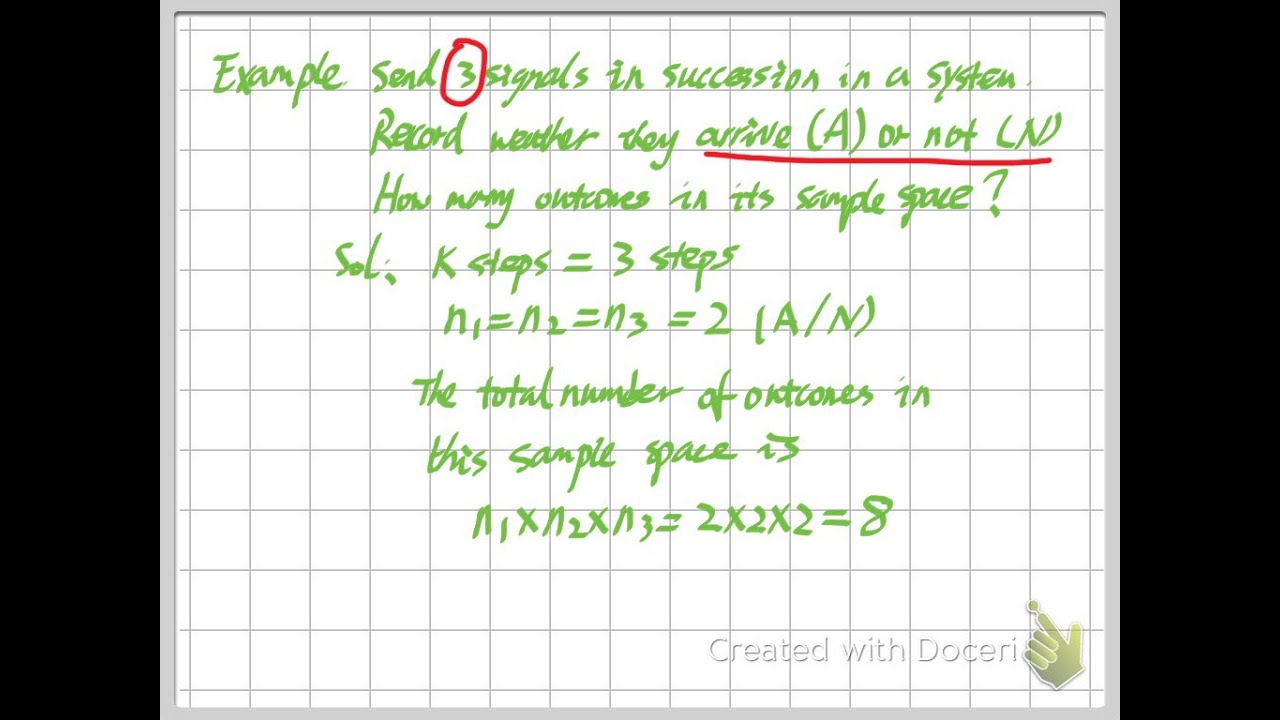 Example. Send 3 signals in succession in a system.
Record weather they arrive (A) or not (N)
How many outcomes in its sample space?
Sol: K steps = 3 steps
n₁=n₂=n₃ = 2 (A/N)
The total number of outcomes in
this sample space is
n₁×n₂×n₃= 2×2×2=8
Created with Doceri